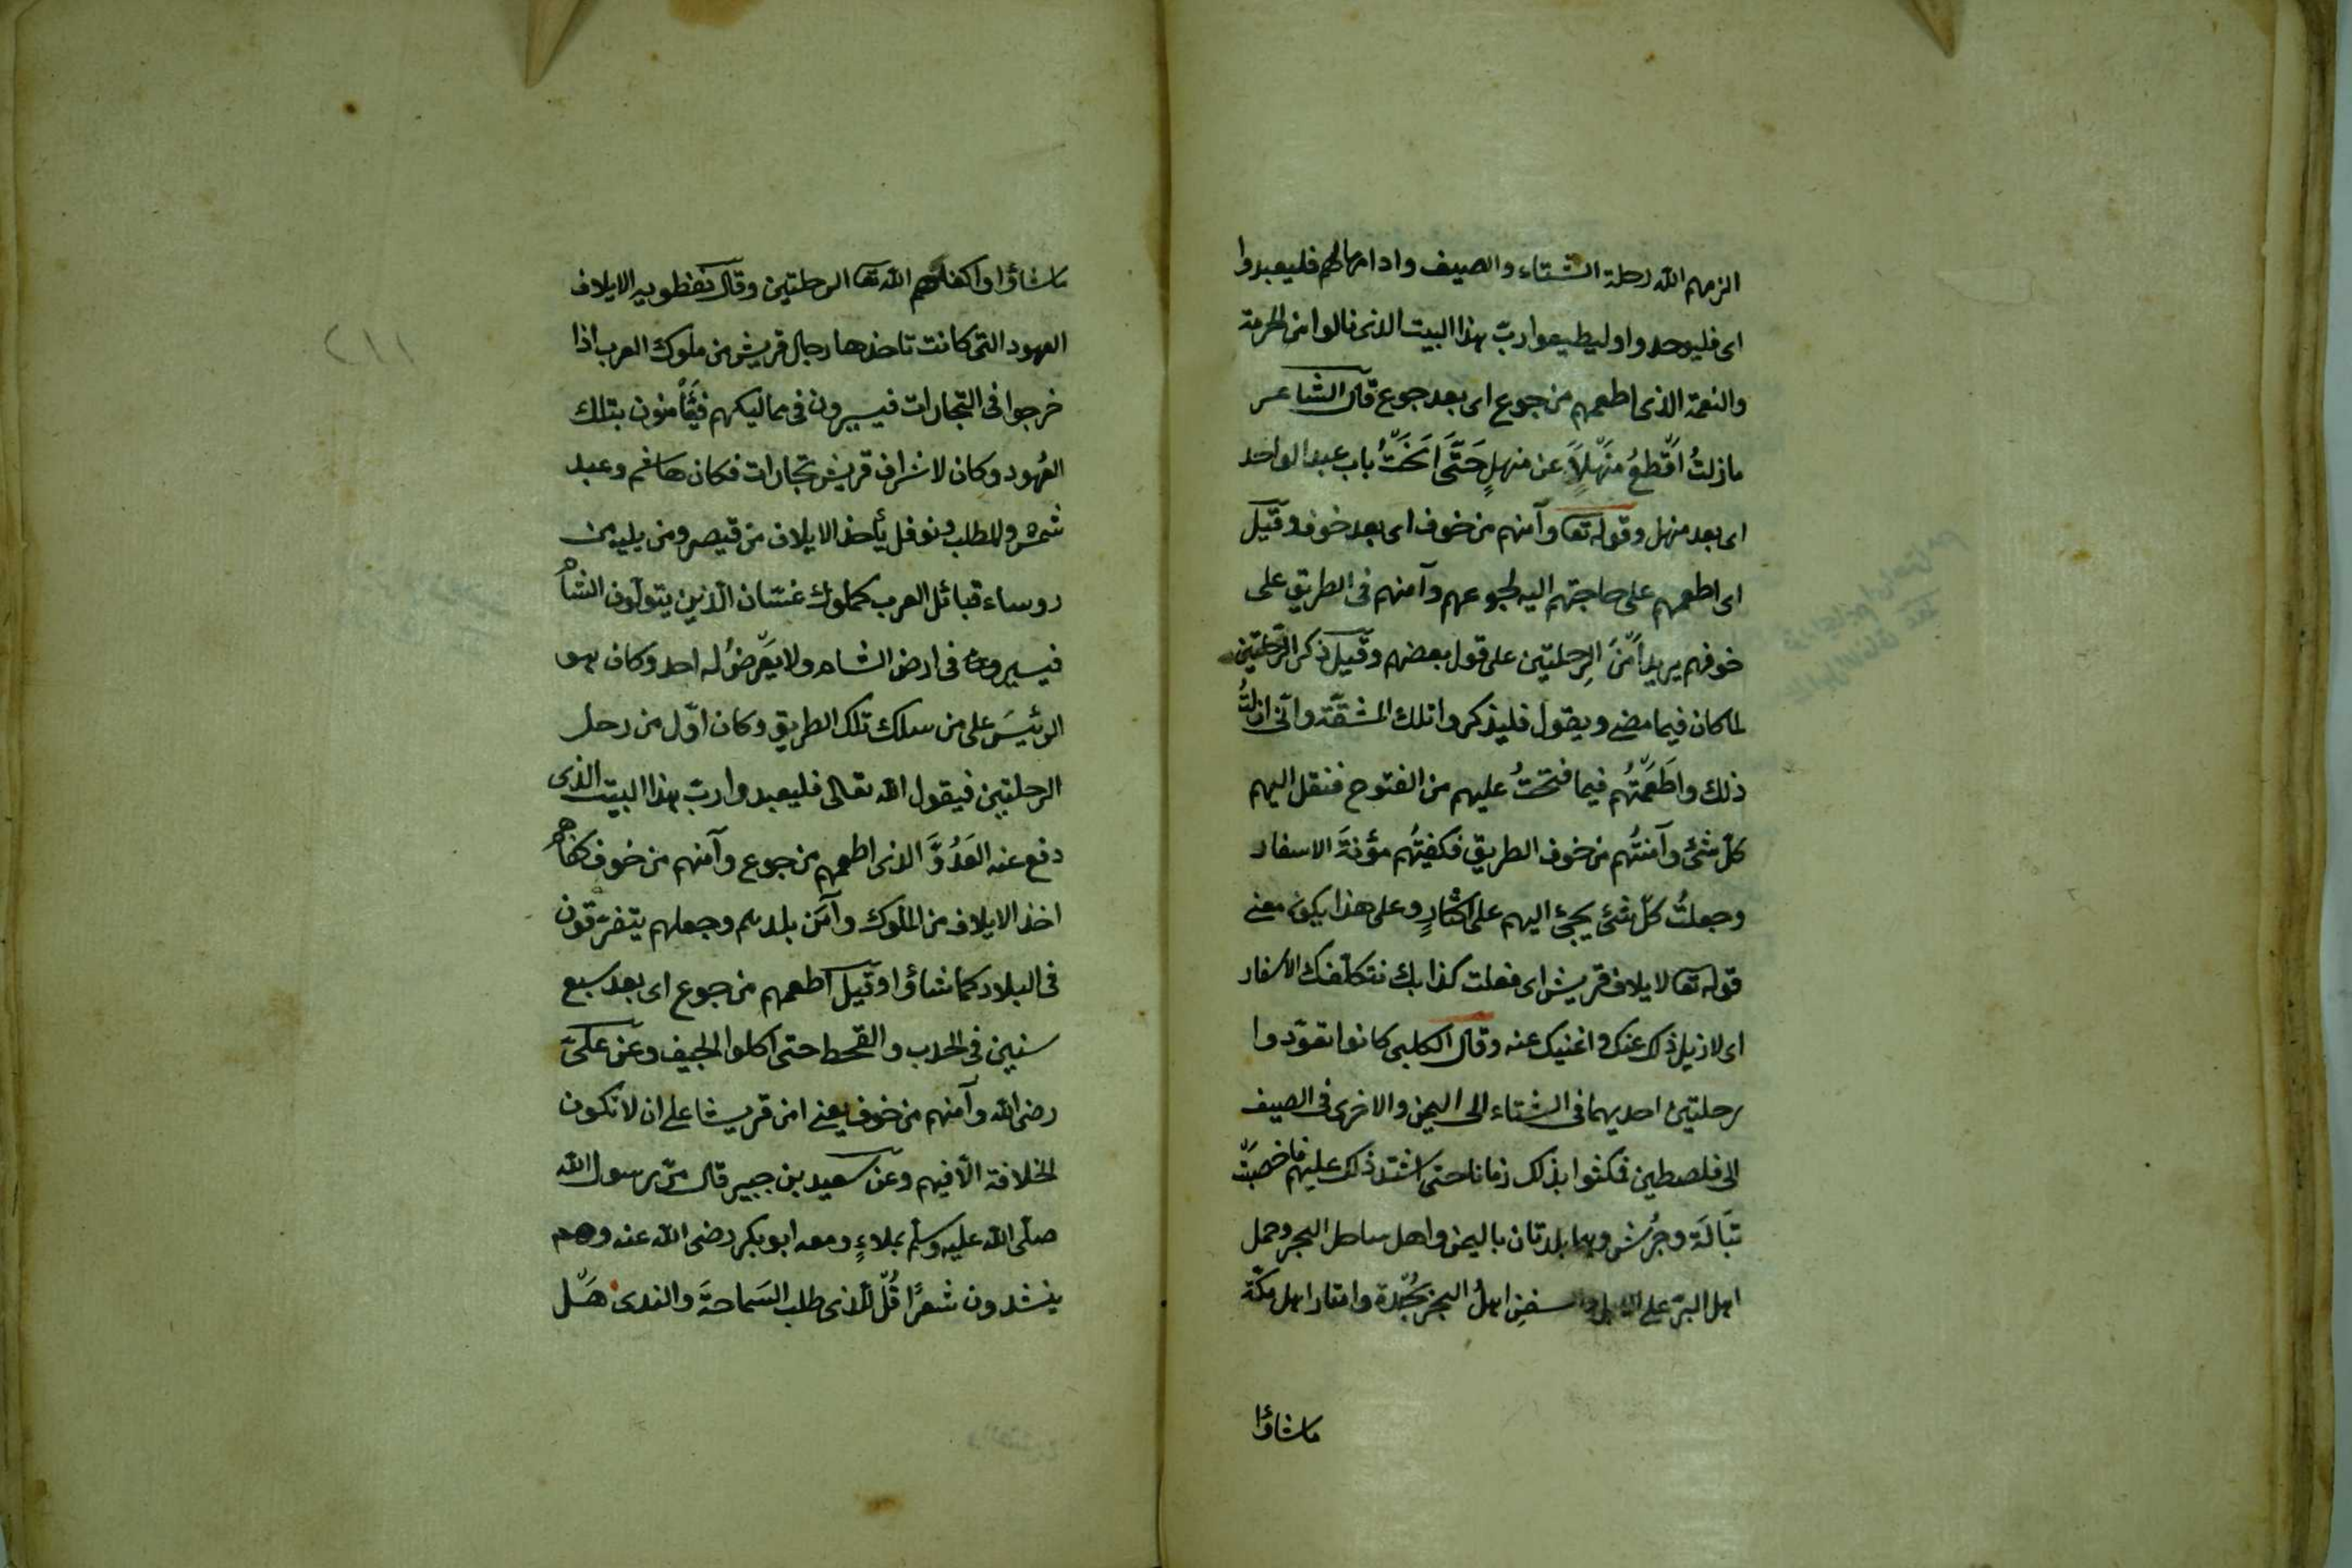 الزمهم الله رحلة الشتاء والصيف وادامها لهم فليعبدوا
اى فليوحدوا وليطيعوا ربّ هذا البيت الذى نالوا من الحرمة
والنعمة الذى اطعمهم من جوع اى بعد جوع قال الشاعر
مازلتُ اقطعُ منهلًا عن منهلٍ حَتَّى اَنَخْتُ باب عبد الواحد
اى بعد منهل وقوله تعا وآمنهم من خوف اى بعد خوف وقيل
اى اطعمهم على حاجتهم اليه لجوعهم وآمنهم فى الطريق على
خوفهم يريد اَمْنَ الرحلتين على قول بعضهم وقيل ذكر الرّحلتين
لما كان فيما مضى ويقول فليذكروا تلك المشقّة وانّى ازلتُ
ذلك واطعمتُهم فيما فتحتُ عليهم من الفتوح فنقل اليهم
كلّ شئ وآمنتُهم من خوف الطريق فكفيتُهم مؤنةَ الاسفار
وجعلتُ كلّ شئ يجئ اليهم على اكثارٍ وعلى هذا يكون معنى
قوله تعا لايلاف قريش اى فعلت كذا بك نتكلفك الاسفار
اى لازيل ذلك عنك واغنيك عنه وقال الكلبى كانوا تعوّدوا
رحلتين احديهما فى الشتاء الى اليمن والاخرى فى الصيف
الى فلصطين فمكثوا بذلك زمانا حتى اشتد ذلك عليهم فاخصبت
تَبَالَة وجُرَش وهما بلدتان باليمن واهل ساحل البحر وحمل
اهل البرّ على الابل و سفن اهلُ البحر بجُدّة وامتار اهل مكّة
ماشاؤا
ماشاؤا واكفاهم الله تعا الرحلتين وقال نفطويه الايلاف
العهود التى كانت تاخذها رجال قريش من ملوك العرب اذا
خرجوا فى التجارات فيسيرون فى مماليكهم فيَأمنون بتلك
العُهود وكان لاشراف قريش تجارات فكان هاشم وعبد
شمس والمطلب ونوفل يأخذ الايلاف من قيصر ومن يليه من
روساء قبائل العرب كملوك غسّان الّذين يتولّون الشام
فيسيرون فى ارض الشام ولا يَعَرّضُ له احد وكان هو
الرئيسَ على من سلك تلك الطريق وكان اوّل من رحل
الرحلتين فيقول الله تعالى فليعبدوا ربّ هذا البيت الذى
دفع عنه العَدُوَّ الذى اطعمهم من جوع وآمنهم من خوف كفاهم
اخذ الايلاف من الملوك وآمَن بلدهم وجعلهم يتفرّقون
فى البلاد كما شاؤا وقيل اطعمهم من جوع اى بعد سبع
سنين فى الجدب والقحط حتى اكلوا الجيف وعن علىّ
رضى الله وآمنهم من خوف يعنى امن قريشا على ان لا تكون
الخلافة الّا فيهم وعن سعيد بن جبير قال مرّ رسول الله
صلّى الله عليه وسلّم بملاءٍ ومعه ابو بكر رضى الله عنه وهم
ينشدون شعرًا قُلْ للّذى طلب السَماحةَ والندى هَلّ
٢١١